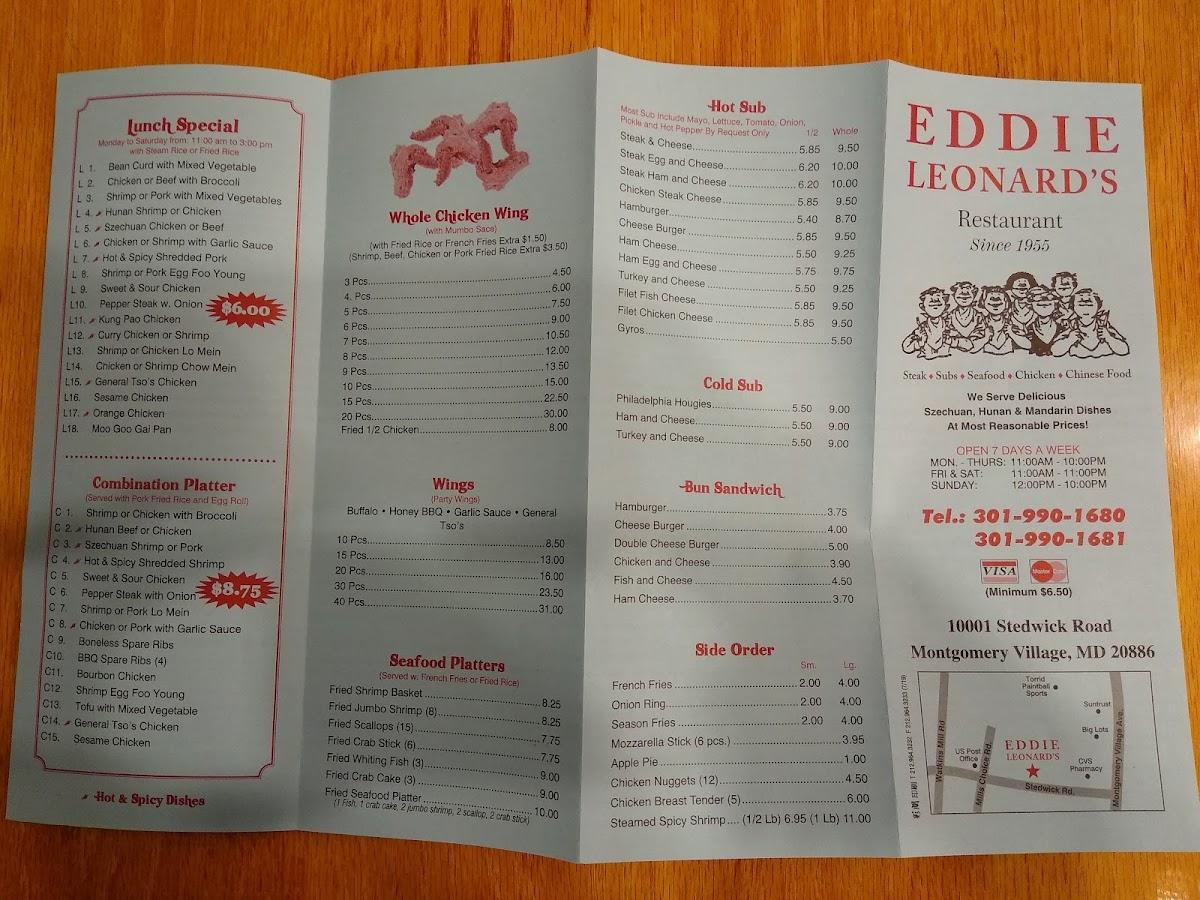 Lunch Special
Monday to Saturday from: 11:00 am to 3:00 pm
with Steam Rice or Fried Rice
L 1. Bean Curd with Mixed Vegetable
L 2. Chicken or Beef with Broccoli
L 3. Shrimp or Pork with Mixed Vegetables
L 4. Hunan Shrimp or Chicken
L 5. Szechuan Chicken or Beef
L 6. Chicken or Shrimp with Garlic Sauce
L 7. Hot & Spicy Shredded Pork
L 8. Shrimp or Pork Egg Foo Young
L 9. Sweet & Sour Chicken
L10. Pepper Steak w. Onion
$6.00
L11. Kung Pao Chicken
L12. Curry Chicken or Shrimp
L13. Shrimp or Chicken Lo Mein
L14. Chicken or Shrimp Chow Mein
L15. General Tso's Chicken
L16. Sesame Chicken
L17. Orange Chicken
L18. Moo Goo Gai Pan
Combination Platter
(Served with Pork Fried Rice and Egg Roll)
C 1. Shrimp or Chicken with Broccoli
C 2. Hunan Beef or Chicken
C 3. Szechuan Shrimp or Pork
C 4. Hot & Spicy Shredded Shrimp
C 5. Sweet & Sour Chicken
C 6. Pepper Steak with Onion
$8.75
C 7. Shrimp or Pork Lo Mein
C 8. Chicken or Pork with Garlic Sauce
C 9. Boneless Spare Ribs
C10. BBQ Spare Ribs (4)
C11. Bourbon Chicken
C12. Shrimp Egg Foo Young
C13. Tofu with Mixed Vegetable
C14. General Tso's Chicken
C15. Sesame Chicken
Hot & Spicy Dishes
Whole Chicken Wing
(with Mumbo Sacs)
(with Fried Rice or French Fries Extra $1.50)
(Shrimp, Beef, Chicken or Pork Fried Rice Extra $3.50)
3 Pcs. 4.50
4. Pcs 6.00
5 Pcs 7.50
6 Pcs 9.00
7 Pcs 10.50
8 Pcs 12.00
9 Pcs 13.50
10 Pcs 15.00
15 Pcs 22.50
20 Pcs 30.00
Fried 1/2 Chicken 8.00
Wings
(Party Wings)
Buffalo • Honey BBQ • Garlic Sauce • General
Tso's
10 Pcs 8.50
15 Pcs 13.00
20 Pcs 16.00
30 Pcs 23.50
40 Pcs 31.00
Seafood Platters
(Served w. French Fries or Fried Rice)
Fried Shrimp Basket 8.25
Fried Jumbo Shrimp (8) 8.25
Fried Scallops (15) 7.75
Fried Crab Stick (6) 7.75
Fried Whiting Fish (3) 9.00
Fried Crab Cake (3) 9.00
Fried Seafood Platter 10.00
(1 Fish, 1 crab cake, 2 jumbo shrimp, 2 scallop, 2 crab stick)
Hot Sub
Most Sub Include Mayo, Lettuce, Tomato, Onion,
Pickle and Hot Pepper By Request Only 1/2 Whole
Steak & Cheese 5.85 9.50
Steak Egg and Cheese 6.20 10.00
Steak Ham and Cheese 6.20 10.00
Chicken Steak Cheese 5.85 9.50
Hamburger 5.40 8.70
Cheese Burger 5.85 9.50
Ham Cheese 5.50 9.25
Ham Egg and Cheese 5.75 9.75
Turkey and Cheese 5.50 9.25
Filet Fish Cheese 5.85 9.50
Filet Chicken Cheese 5.85 9.50
Gyros 5.50
Cold Sub
Philadelphia Hougies 5.50 9.00
Ham and Cheese 5.50 9.00
Turkey and Cheese 5.50 9.00
Bun Sandwich
Hamburger 3.75
Cheese Burger 4.00
Double Cheese Burger 5.00
Chicken and Cheese 3.90
Fish and Cheese 4.50
Ham Cheese 3.70
Side Order
Sm. Lg.
French Fries 2.00 4.00
Onion Ring 2.00 4.00
Season Fries 2.00 4.00
Mozzarella Stick (6 pcs.) 3.95
Apple Pie 1.00
Chicken Nuggets (12) 4.50
Chicken Breast Tender (5) 6.00
Steamed Spicy Shrimp.... (1/2 Lb) 6.95 (1 Lb) 11.00
EDDIE
LEONARD'S
Restaurant
Since 1955
Steak ♦ Subs ♦ Seafood ♦ Chicken ♦ Chinese Food
We Serve Delicious
Szechuan, Hunan & Mandarin Dishes
At Most Reasonable Prices!
OPEN 7 DAYS A WEEK
MON. - THURS: 11:00AM - 10:00PM
FRI & SAT: 11:00AM - 11:00PM
SUNDAY: 12:00PM - 10:00PM
Tel.: 301-990-1680
301-990-1681
VISA
Master Card
(Minimum $6.50)
10001 Stedwick Road
Montgomery Village, MD 20886
Torrid
Paintball
Sports
Suntrust
Big Lots
Watkins Mill Rd
US Post
Office
Mills Choice Rd.
EDDIE
LEONARD'S
CVS
Pharmacy
Montgomery Village Ave.
Stedwick Rd.
T 212.964.3232 F 212.964.3233 (7/19)